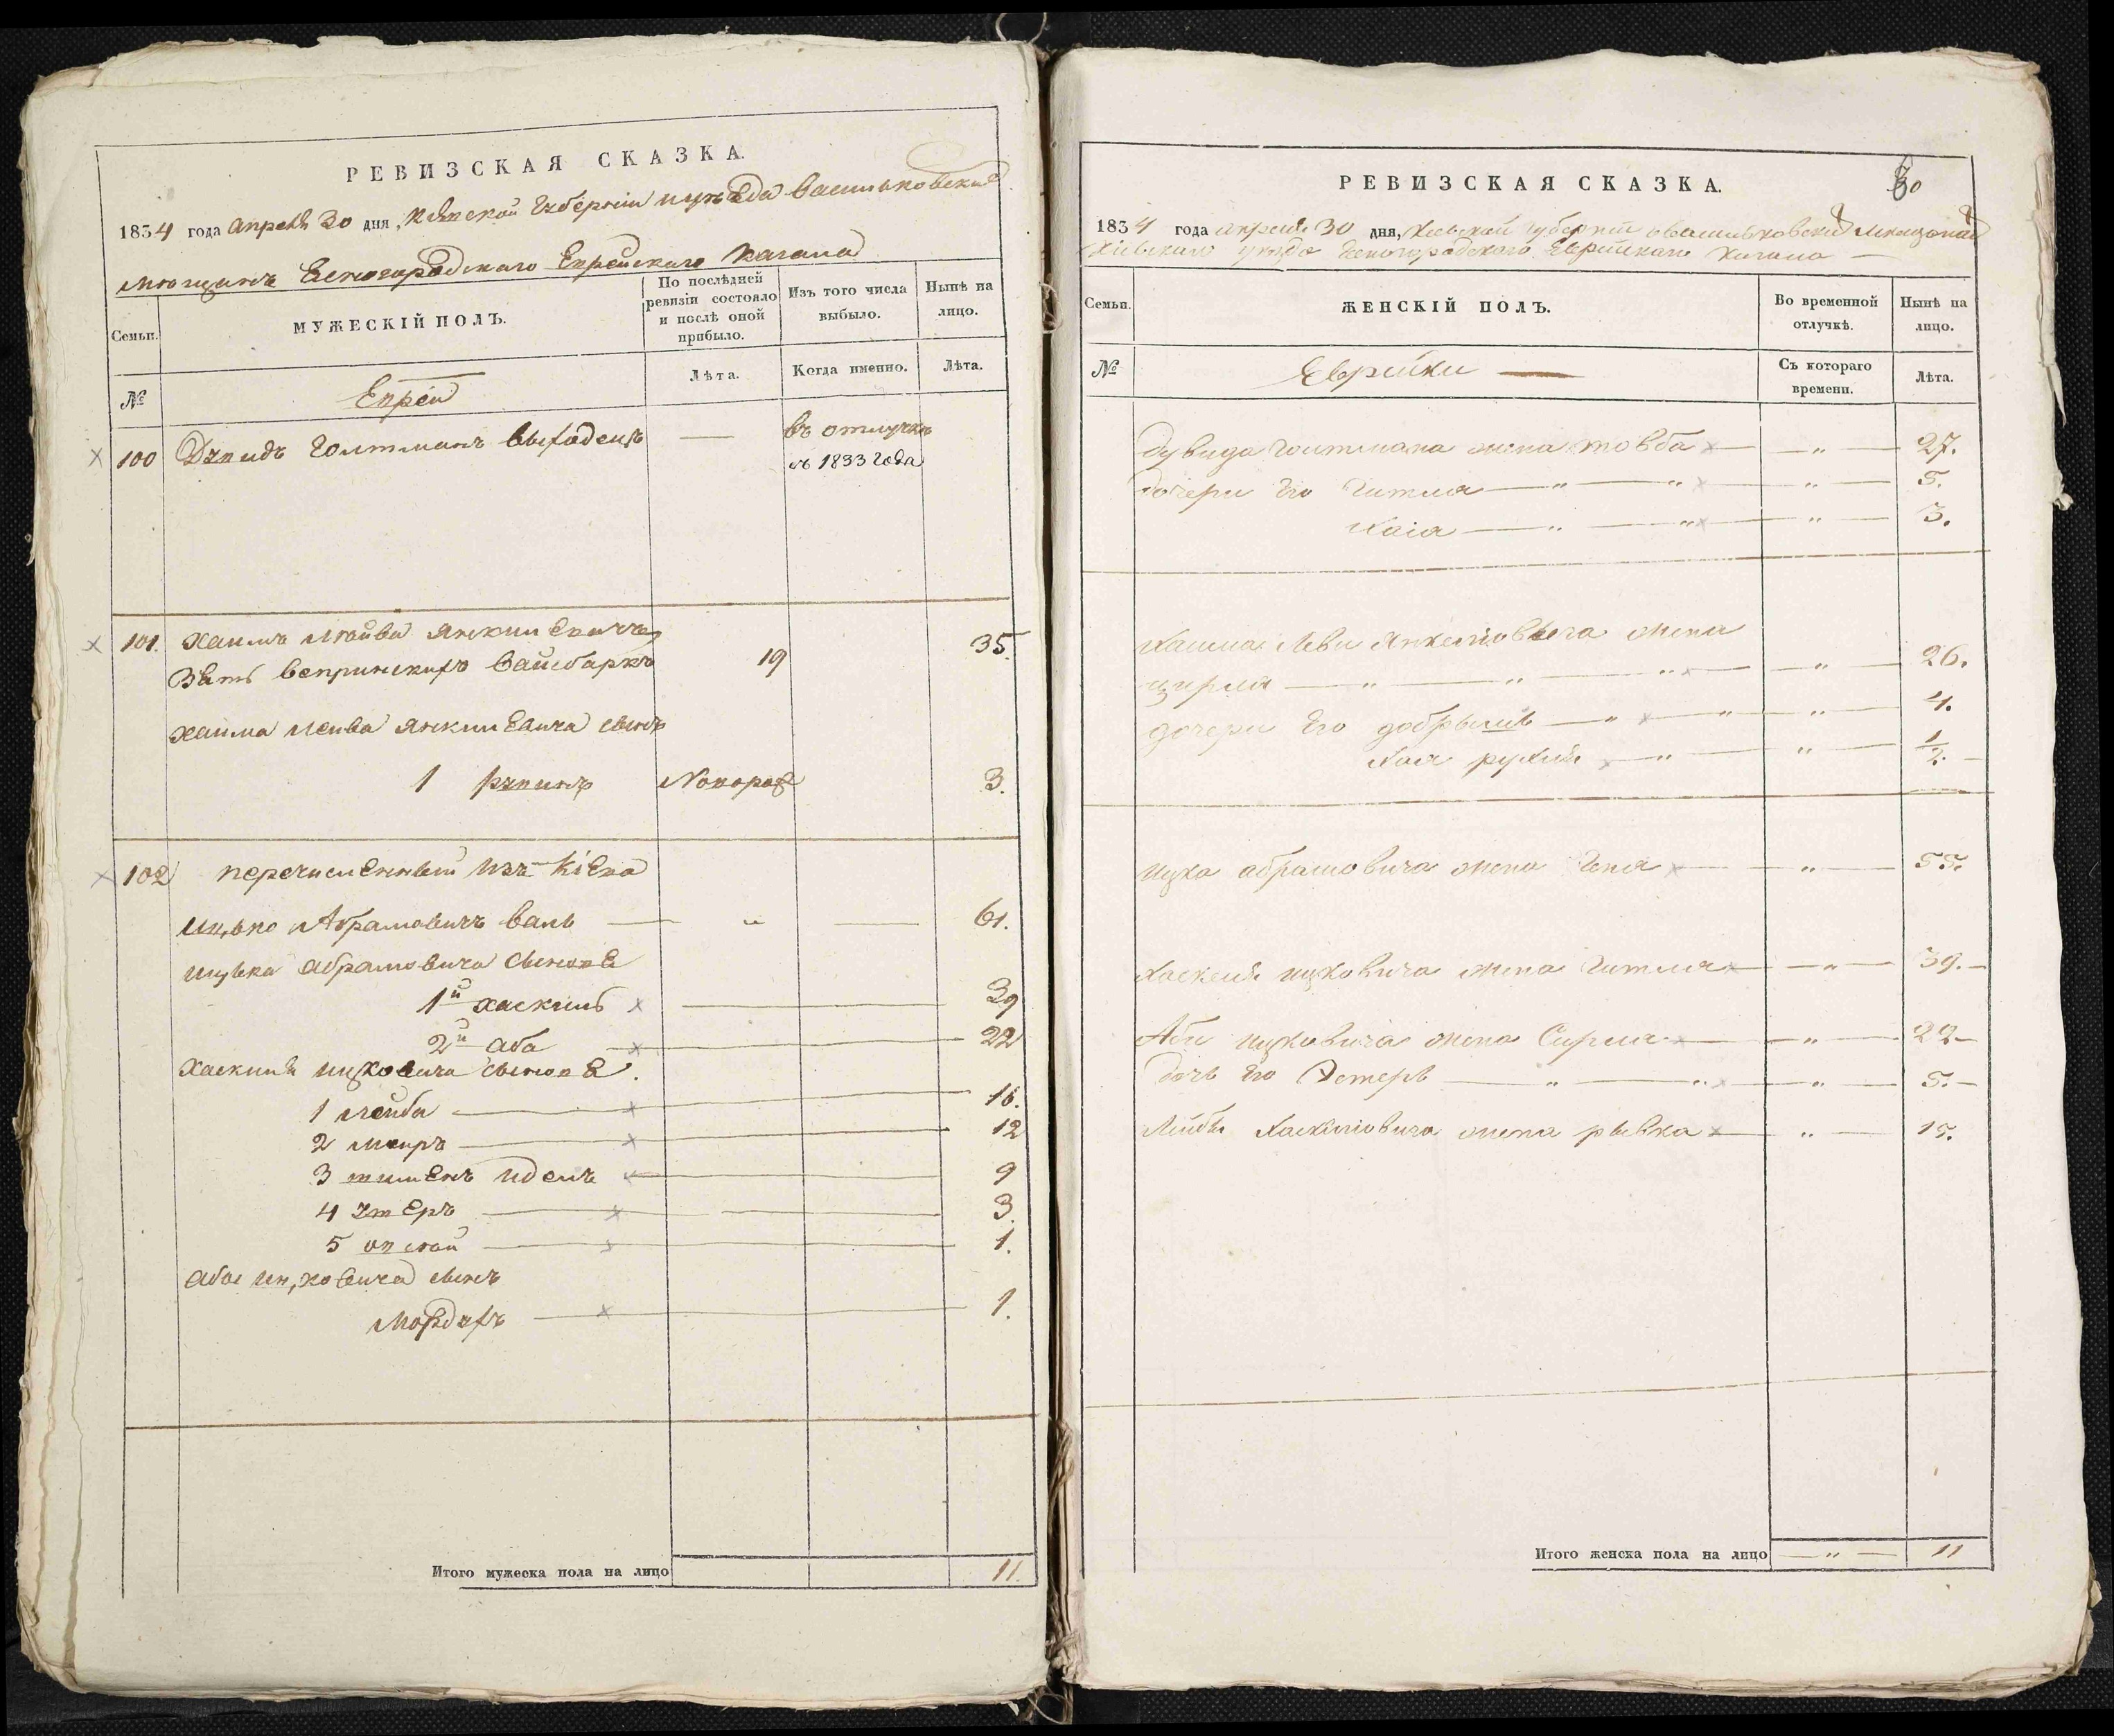 РЕВИЗСКАЯ СКАЗКА.
1834 года апреля 30 дня, Киевской Губернии и уезда Васильковский
мющанъ Белогородскаго Еврейскаго Кагала
Семьи.
МУЖЕСКІЙ ПОЛЪ.
По послѣдней ревизіи состояло и послѣ оной прибыло.
Изъ того числа выбыло.
Нынѣ на лицо.
№
Евреи
Лѣта.
Когда именно.
Лѣта.
100 Дувидъ Голтманъ въ отлучкѣ
съ 1833 года
101. Хаимъ Лейва Янкилевичъ 35.
Зять Вайсбаркъ 19
Хаима Лейва Янкилевича сынъ
1 рувинъ Новорож 3.
102 перечисленный изъ Кіева
Ицько Абрамовичъ Валь — " — 61.
Ицька Абрамовича сыновя
1й Хаскиль 39
2й Аба 22
Хаскиля Ицковича сыновя.
1 лейба 16.
2 меиръ 12
3 Иделъ 9
4 9
5 1.
Абы Ицковича сынъ
Мордухъ 1.
Итого мужеска пола на лицо 11.
РЕВИЗСКАЯ СКАЗКА.
30
1834 года апреля 30 дня, Киевской губерніи Васильковский
Кіевскаго уезда Белогородскаго Еврейскаго Кагала —
Семьи.
ЖЕНСКІЙ ПОЛЪ.
Во временной отлучкѣ.
Нынѣ на лицо.
№
Еврейки —
Съ котораго времени.
Лѣта.
Дувида Голтмана жена товба — " — 27.
дочери его Гитля — " — " — " — 5.
Хаія — " — " — " — 3.
Хаима Леви Янкелиовича жена
цирля — " — " — " — " — 26.
дочери его добрышъ — " — " — " — 4.
Хая рухля — " — " — 1/2. —
Ицка абрамовича жена Геня — " — 55.
Хаскеля ицковича жена Гитля — " — 39. —
Абы ицковича жена Сирля — " — 22 —
дочь его Эстеръ — " — " — " — 5. —
Лейбы Хаскелиовича жена рывка — " — 15.
Итого женска пола на лицо — " — 11